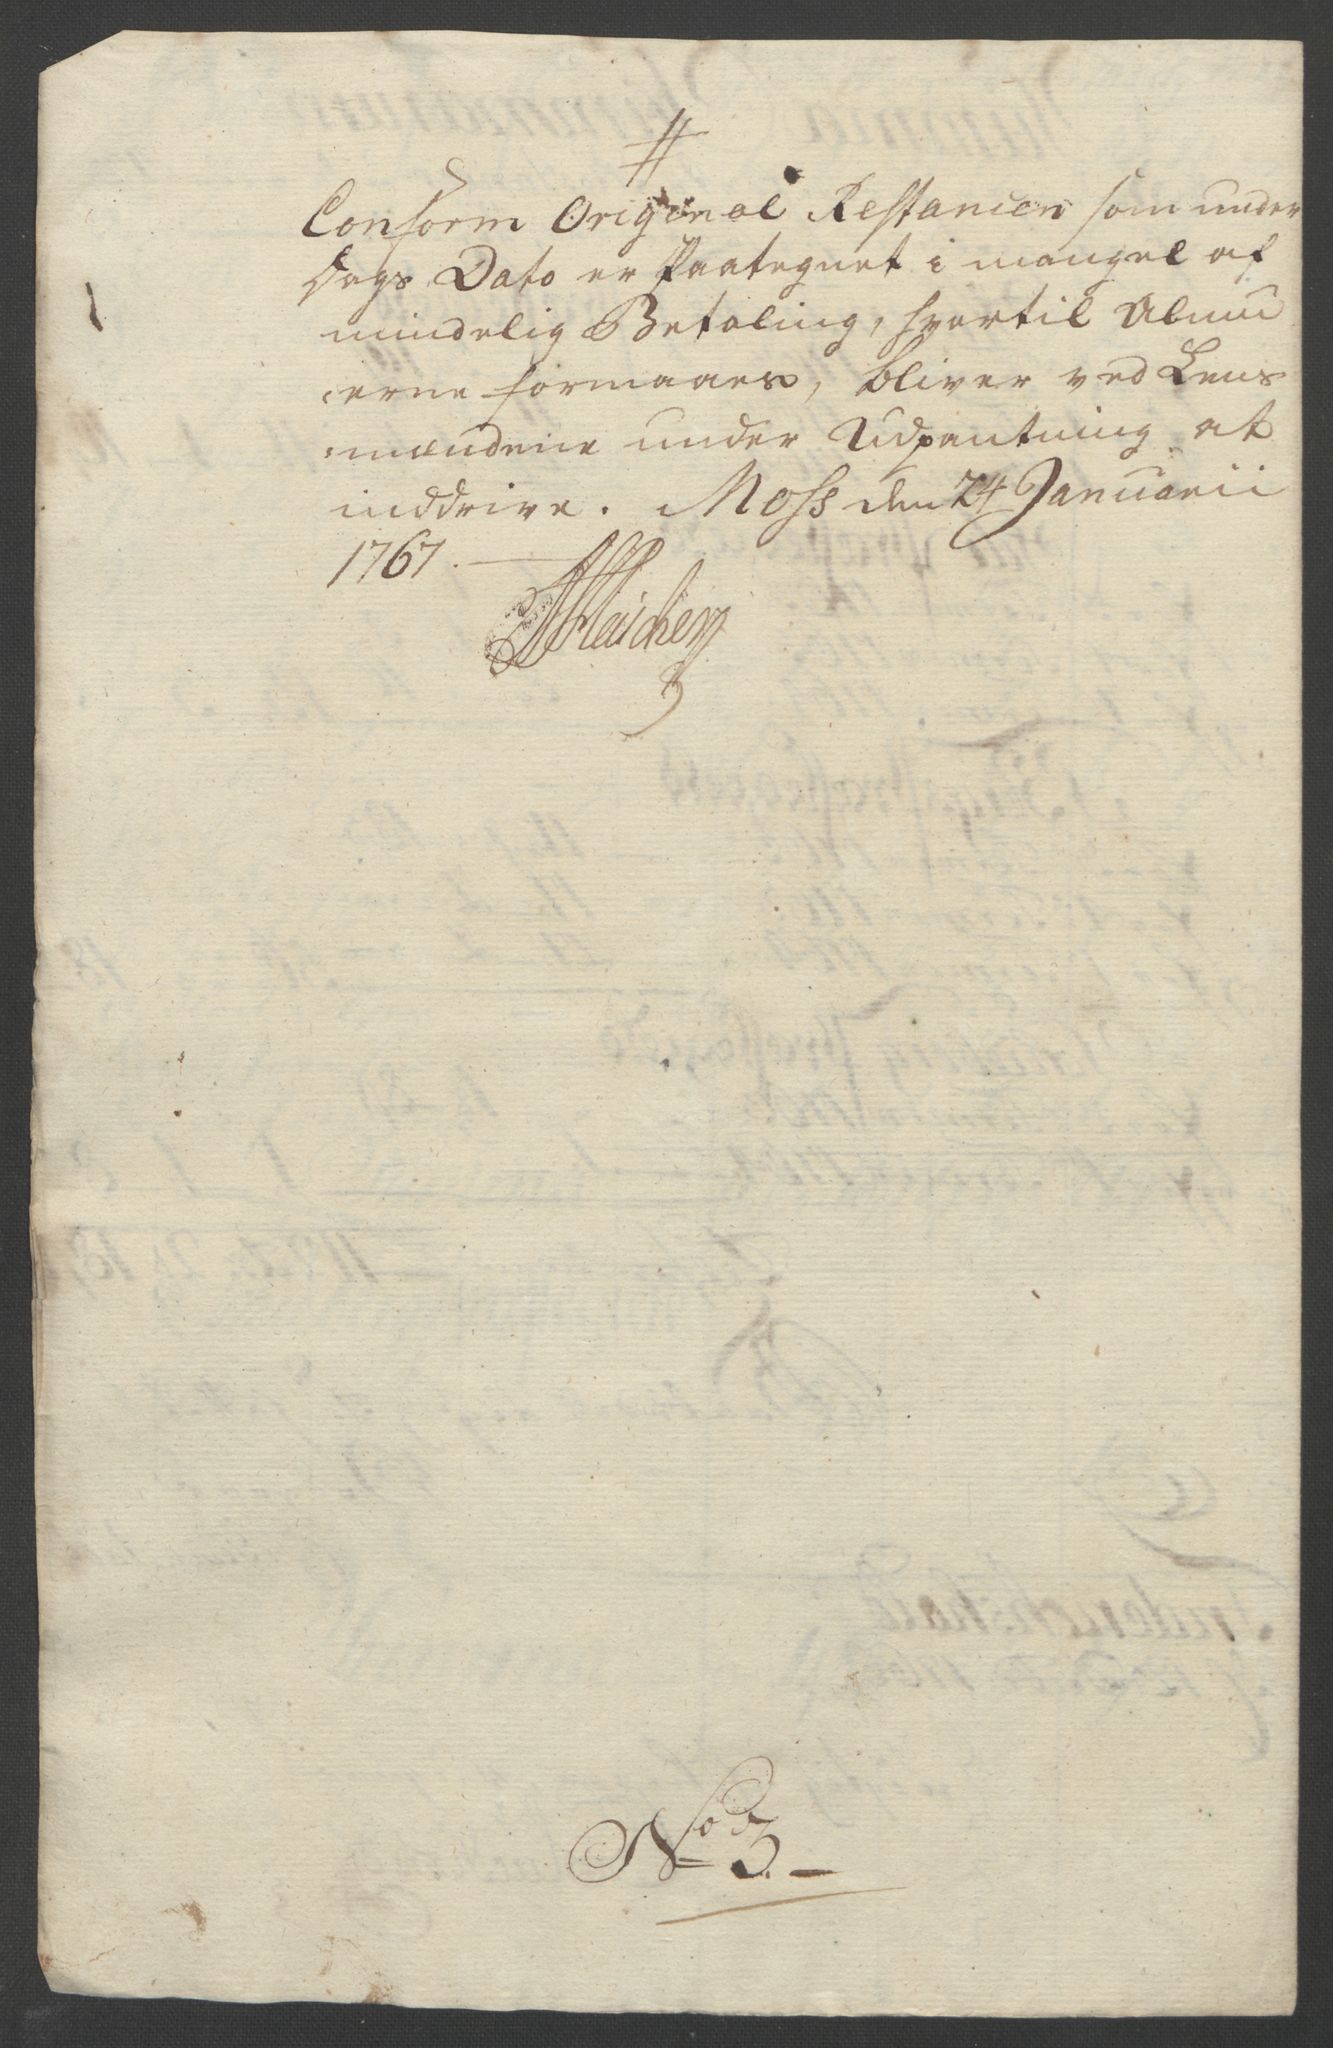 Conform Original Restancen som under
Dags Dato er Paategnet i mangel af
mindelig Betaling, hvortil Almu
erne formaaes, bliver ved Lens
mændene under Udpantning at
inddrive. Moss den 24 Januarii
1767.
No 3.